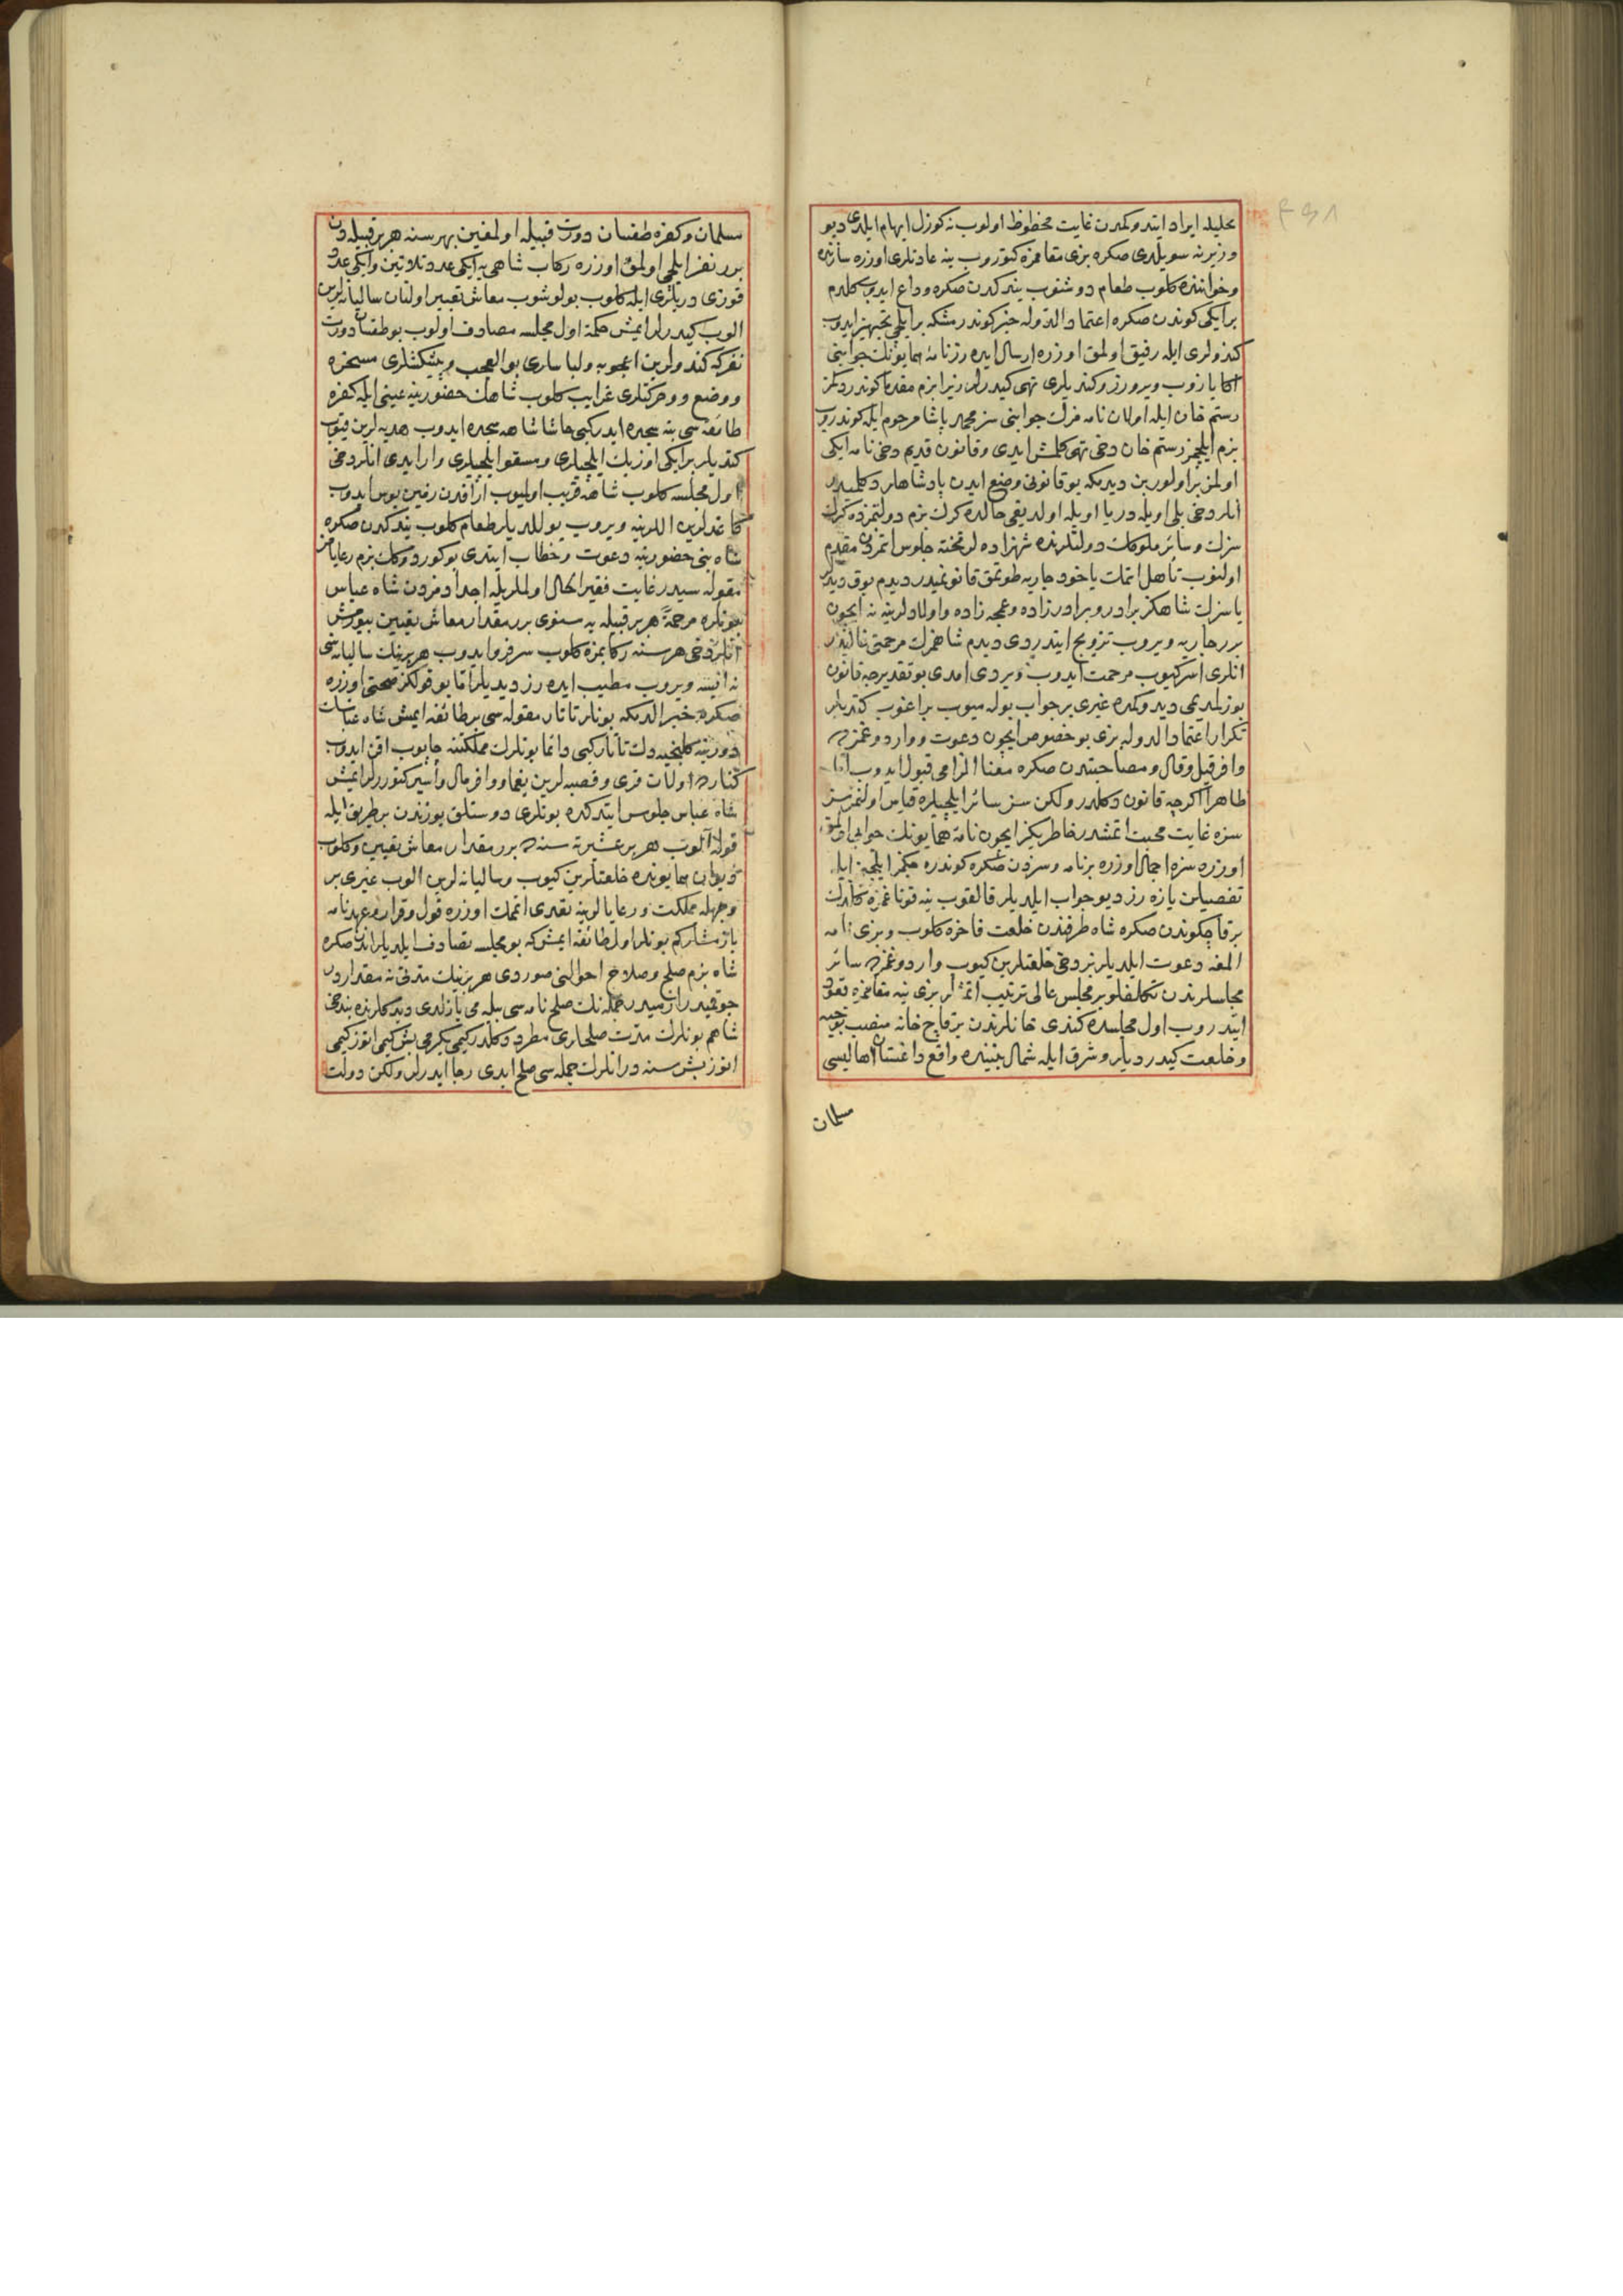 تحلیله ایراد ایتدوكمدن غایت محظوظ اولوب نه كوزل ایهام ایلدی دیو
وزیرنه سویلدی صكره بزی مقامزه كتوروب ینه عادتلری اوزره سازنده
وخواننده كلوب طعام دوشنوب یندكدن صكره وداع ایدوب كلدم
بر ایكی كوندن صكره اعتماد الدوله خبر كوندرمشكه بر ایلچی تجهیز ایدوب
كندولری ایله رفیق اولمق اوزره ارسال ایده رز نامهٔ همایونك جوابنی
اكا یازوب ویرورز وكندیلری تهی كیدرلر زیرا بزم مقدما كوندردكمز
رستم خان ایله اولان نامه مزك جوابنی سز محمد پاشا مرحوم ایله كوندروب
بزم ایلچمز رستم خان دخی تهی كلمش ایدی وقانون قدیم دخی نامه ایكی
اولمز بر اولور بن دیدمكه بو قانونی وضع ایدن پادشاهلر دكلمیدر
انلر دخی بلی اویله در یا اویله اولدیغی حالده كرك بزم دولتمزده كرك
سزك وسائر ملوكك دولتلرنده شهزاده لر تخته جلوس اتمزدن مقدم
اولنوب تأهل اتمك یاخود جاریه طوتمق قانونمیدر دیدم یوق دیدیلر
یا سزك شاهكز برادر وبرادرزاده وعمجه زاده واولادلرینه نه ایچون
برر جاریه ویروب تزویج ایتدردی دیدم شاهمزك مرحمتی غالبدر
انلری اسركیوب مرحمت ایدوب ویردی امدی بو تقدیرجه قانون
بوزلمدیمی دیدوكمده غیری بر جواب بوله میوب براغوب كتدیلر
تكرار اعتماد الدوله بزی بو خصوص ایچون دعوت وواردوغمزده
وافر قیل وقال ومصاحبتدن صكره معنا الزامی قبول ایدوب اما
ظاهرا اكرچه قانون دكلدر ولكن سز سائر ایلچیلره قیاس اولنمز سز
سزه غایت محبت اتمشدر خاطریكز ایچون نامهٔ همایونك جوابی اولمق
اوزره سزه اجمال اوزره بر نامه وسزدن صكره كوندره جكمز ایلچی ایله
تفصیلن یازه رز دیو جواب ایلدیلر قالقوب ینه قوناغمزه كلدك
بر قاچ كوندن صكره شاه طرفندن خلعت فاخره كلوب وبزی نامه
المغه دعوت ایلدیلر بز دخی خلعتلرین كیوب واردوغمزده سائر
مجلسلرندن تكلفلو بر مجلس عالی ترتیب اتمشلر بزی ینه مقامزه قعود
ایتدروب اول مجلسده كندی خانلرندن بر قاچ خانه منصب توجیه
وخلعت كیدردیلر وشرق ایله شمال بیننده واقع داغستان اهالیسی
مسلمان
مسلمان وكفره طقسان دورت قبیله اولمغین بهر سنه هر بر قبیله دن
برر نفر ایلچی اولمق اوزره ركاب شاهی یه ایكی عدد تلاتین وایكی عدد
قوزی دریلری ایله كلوب بولوشوب معاش تعبیر اولنان سالیانه لرین
الوب كیدرلر ایمش حكمة اول مجلسه مصادف اولوب بو طقسان دورت
نفركه كندولرین اعجوبه ولباسلری بوالعجب وپیشكشلری مسخره
ووضع وحركتلری غرایب كلوب شاهك حضورینه عینی ایله كفره
طائفه سی بته سجده ایدر كبی حاشا شاهه سجده ایدوب هدیه لرین قیوب
كتدیلر بر ایكی اوزبك ایلچیلری ومسقو ایلچیلری وار ایدی انلر دخی
اول مجلسه كلوب شاهه قریب اولمیوب اراقدن زمین بوس ایدوب
كاغدلرین اللرینه ویروب یوللدیلر طعام كلوب یندكدن صكره
شاه بنی حضورینه دعوت وخطاب ایتدی بو كوردوكك بزم رعایامز
مقوله سیدر غایت فقیر الحال اولملریله اجدادمزدن شاه عباس
بونلره مرحمة هر بر قبیله یه سنوی برر مقدار معاش تعیین بیورمش
انلر دخی هر سنه ركابمزه كلوب سرفرو ایدوب هر برینك سالیانه سی
نه ایسه ویروب مطیب ایده رز دیدیلر اما بو قولكز صحتی اوزره
صكره خبر الدمكه بونلر تاتار مقوله سی بر طائفه ایمش شاه عباسك
دورینه كلنجیه دك تاتار كبی دائما بونلرك مملكتنه چاپوب اقن ایدوب
كنارده اولان قری وقصبه لرین یغما ووافر مال واسیر كتوررلر ایمش
شاه عباس جلوس ایتدكده بونلری دوستلق یوزندن بر طریق ایله
قوله آلوب هر بر عشیرته سنده برر مقدار معاش تعیین وكلوب
دیوان همایونده خلعتلرین كیوب وسالیانه لرین الوب غیری بر
وجهله مملكت ورعایالرینه تعدی اتمك اوزره قول وقرار وعهدنامه
یازمشلركم بونلر اول طائفه ایمش كه بو مجلسه تصادف ایلدیلر اندن صكره
شاه بزم صلح وصلاح احوالنی صوردی هر برینك مدتی نه مقداردر
چوقمیدر ازمیدر جمله نك صلح نامه سی بیله می یازلدی دیدكلرنده بن دخی
شاهم بونلرك مدت صلحلری مطرد دكلدر كیمی یكرمی بش كیمی اتوز كیمی
اتوز بش سنه در انلرك جمله سی صلح ابدی رجا ایدرلر ولكن دولت